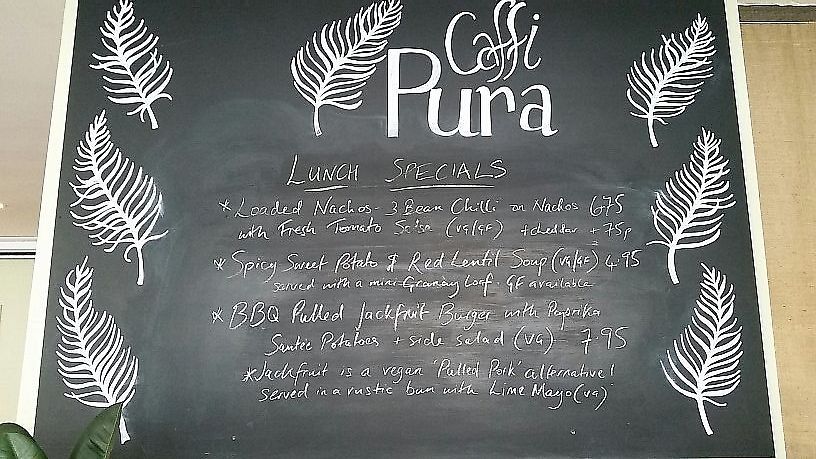 Caffi
Pura
LUNCH SPECIALS
* Loaded Nachos - 3 Bean Chilli on Nachos 6.75
with Fresh Tomato Salsa (VG/GF) + cheddar + 75p
* Spicy Sweet Potato & Red Lentil Soup (VG/GF) 4.95
served with a mini Granary loaf. GF available
* BBQ Pulled Jackfruit Burger with Paprika
Sautée Potatoes + side salad (VG) 7.95
*Jackfruit is a vegan 'Pulled Pork' alternative!
served in a rustic bun with Lime Mayo (VG)